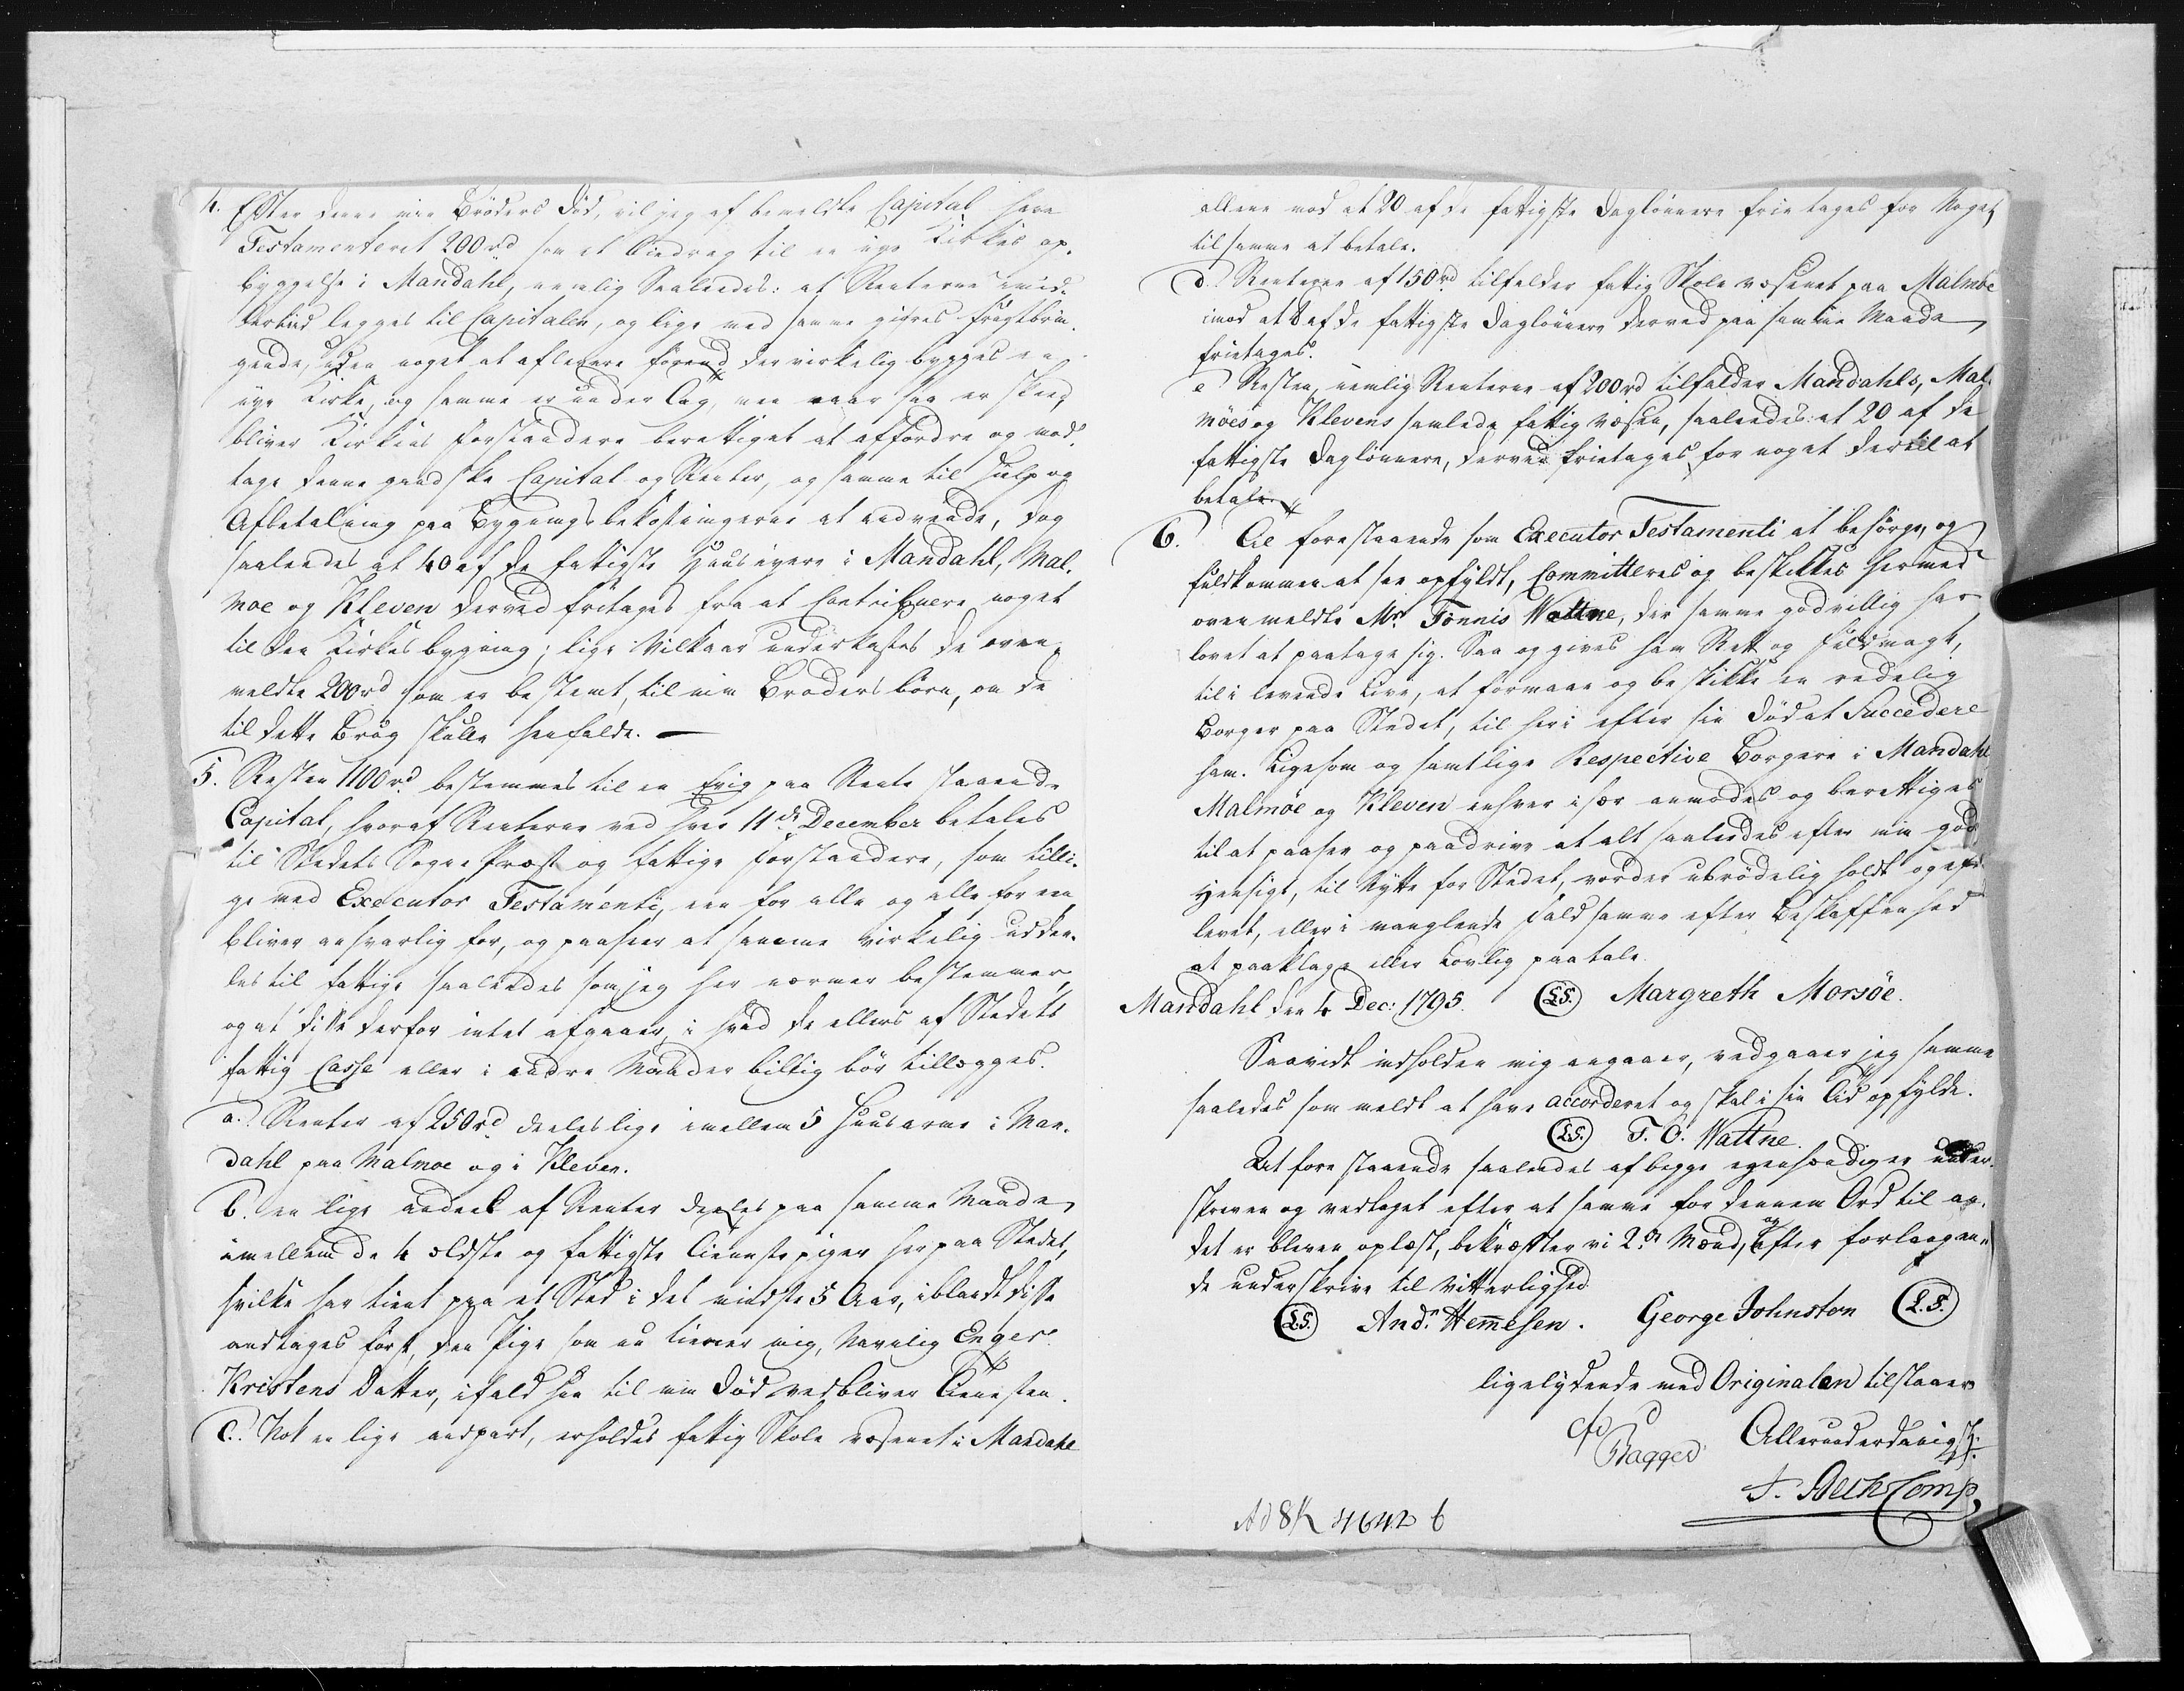 4. Efter denne min Broders Død, vil jeg af bemeldte Capital have
Testamenteret 200rd som et Bidrag til en nye Kirkes op-
byggelse i Mandahl, nemlig Saaledes: at Renterne imid-
lertiid legges til Capitalen, og lige med samme giøres frugtbrin-
gende, uden noget at aflevere førend der virkelig bygges en
nye Kirke, og samme er under Tag, men naar saa er skeed,
bliver Kirkens Forstandere berettiget at affordre og mod-
tage denne gandske Capital og Renter, og samme til Hielp og
Afbetaling paa Bygningsbekostningerne at andvende, dog
saaledes at 40 af de fattigste Huuseyere i Mandahl, Mal-
møe og Kleven derved fritages fra at Contribuere noget
til den Kirkes bygning; lige Vilkaar underkastes de oven-
meldte 200rd som er bestemt, til min Broders børn, om de
til dette Brug skulle henfalde. —
5. Resten 1100rd bestemmes til en Evig paa Rente staaende
Capital, hvoraf Renterne ved hver 11de December betales
til Stedets Sognepræst og fattiges Forstandere, som tilli-
ge med Executor Testamenti, een for alle og alle for een
bliver ansvarlig for, og paaseer at samme virkelig uddee-
les til fattige saaledes som jeg her nærmer bestemmer,
og at disse derfor intet afgaaer, i hvad de ellers af Stedets
fattig Casse eller i andre Maader billig bør tillægges.
a. Renter af 250rd deeles lige imellem 5 Huusarme i Man-
dahl paa Malmøe og i Kleven.
b. en lige andeel af Renter deeles paa samme Maade
imellem de 4 ældste og fattigste Tienestepiger her paa Stedet,
hvilke har tient paa et Sted i det mindste 5 Aar, iblandt disse
andtages først, den Pige som nu tiener mig, Navnlig Enger
Kristens Datter, ifald hun til min Død vedbliver Tienesten.
c. Nok en lige andpart, erholdes fattig Skole væsenet i Mandahl
allene mod at 20 af de fattigste Daglønnere frie tages for Noget
til samme at betale.
d. Renterne af 150rd tilfalder fattig Skole væsenet paa Malmøe
imod at 8 af de fattigste Dagløнnere derved paa samme Maade
frietages.
e Resten, nemlig Renterne af 200rd tilfalder Mandahls, Mal-
møes og Klevens samlede fattig væsen, saaledes: at 20 af de
fattigste Dagløнnere, derved frietages for noget dertil at
betale.
6. Alt forestaaende som Executor Testamenti at besørge, og
fuldkommen at see opfyldt, Committeres og beskikkes hermed
ovenmeldte Mr. Tønnis Wattne, der samme godvillig har
lovet at paatage sig. Saa og gives ham Ret og Fuldmagt,
til i levende Live, at formaae og beskikke en redelig
Borger paa Stedet, til heri efter sin Død at Succedere
ham. Ligesom og samtlige Respective Borgere i Mandahl
Malmøe og Kleven enhver især anmodes og berettiges
til at paasee og paadrive at alt saaledes efter min gode
Hensigt, til Nytte for Stedet, vorder ubrødelig holdt og ef-
levet, eller i manglende Fald samme efter Beskaffenhed
at paaklage eller Lovlig paatale.
Mandahl den 4 Dec: 1795. (LS.) Margreth Morsöe.
Saavidt indholden mig angaaer, vedgaaer jeg samme
saaledes som meldt at have accorderet og skal i sin Tid opfylde.
(LS.) T. O. Wattne.
At forestaaende saaledes af begge egenhændigen under-
skreven og vedtaget efter at samme for dennem Ord til an-
det er bleven oplæst, bekræfter vi 2de Mænd, og efter forlangen-
de underskrive til Vitterlighed
(LS.) Andr. Hemmesen. George Johnston (L.S.)
ligelydende med Originalen tilstaaer
Bagger Allerunderdanigst:
Comp
Ad 8K 4642 b